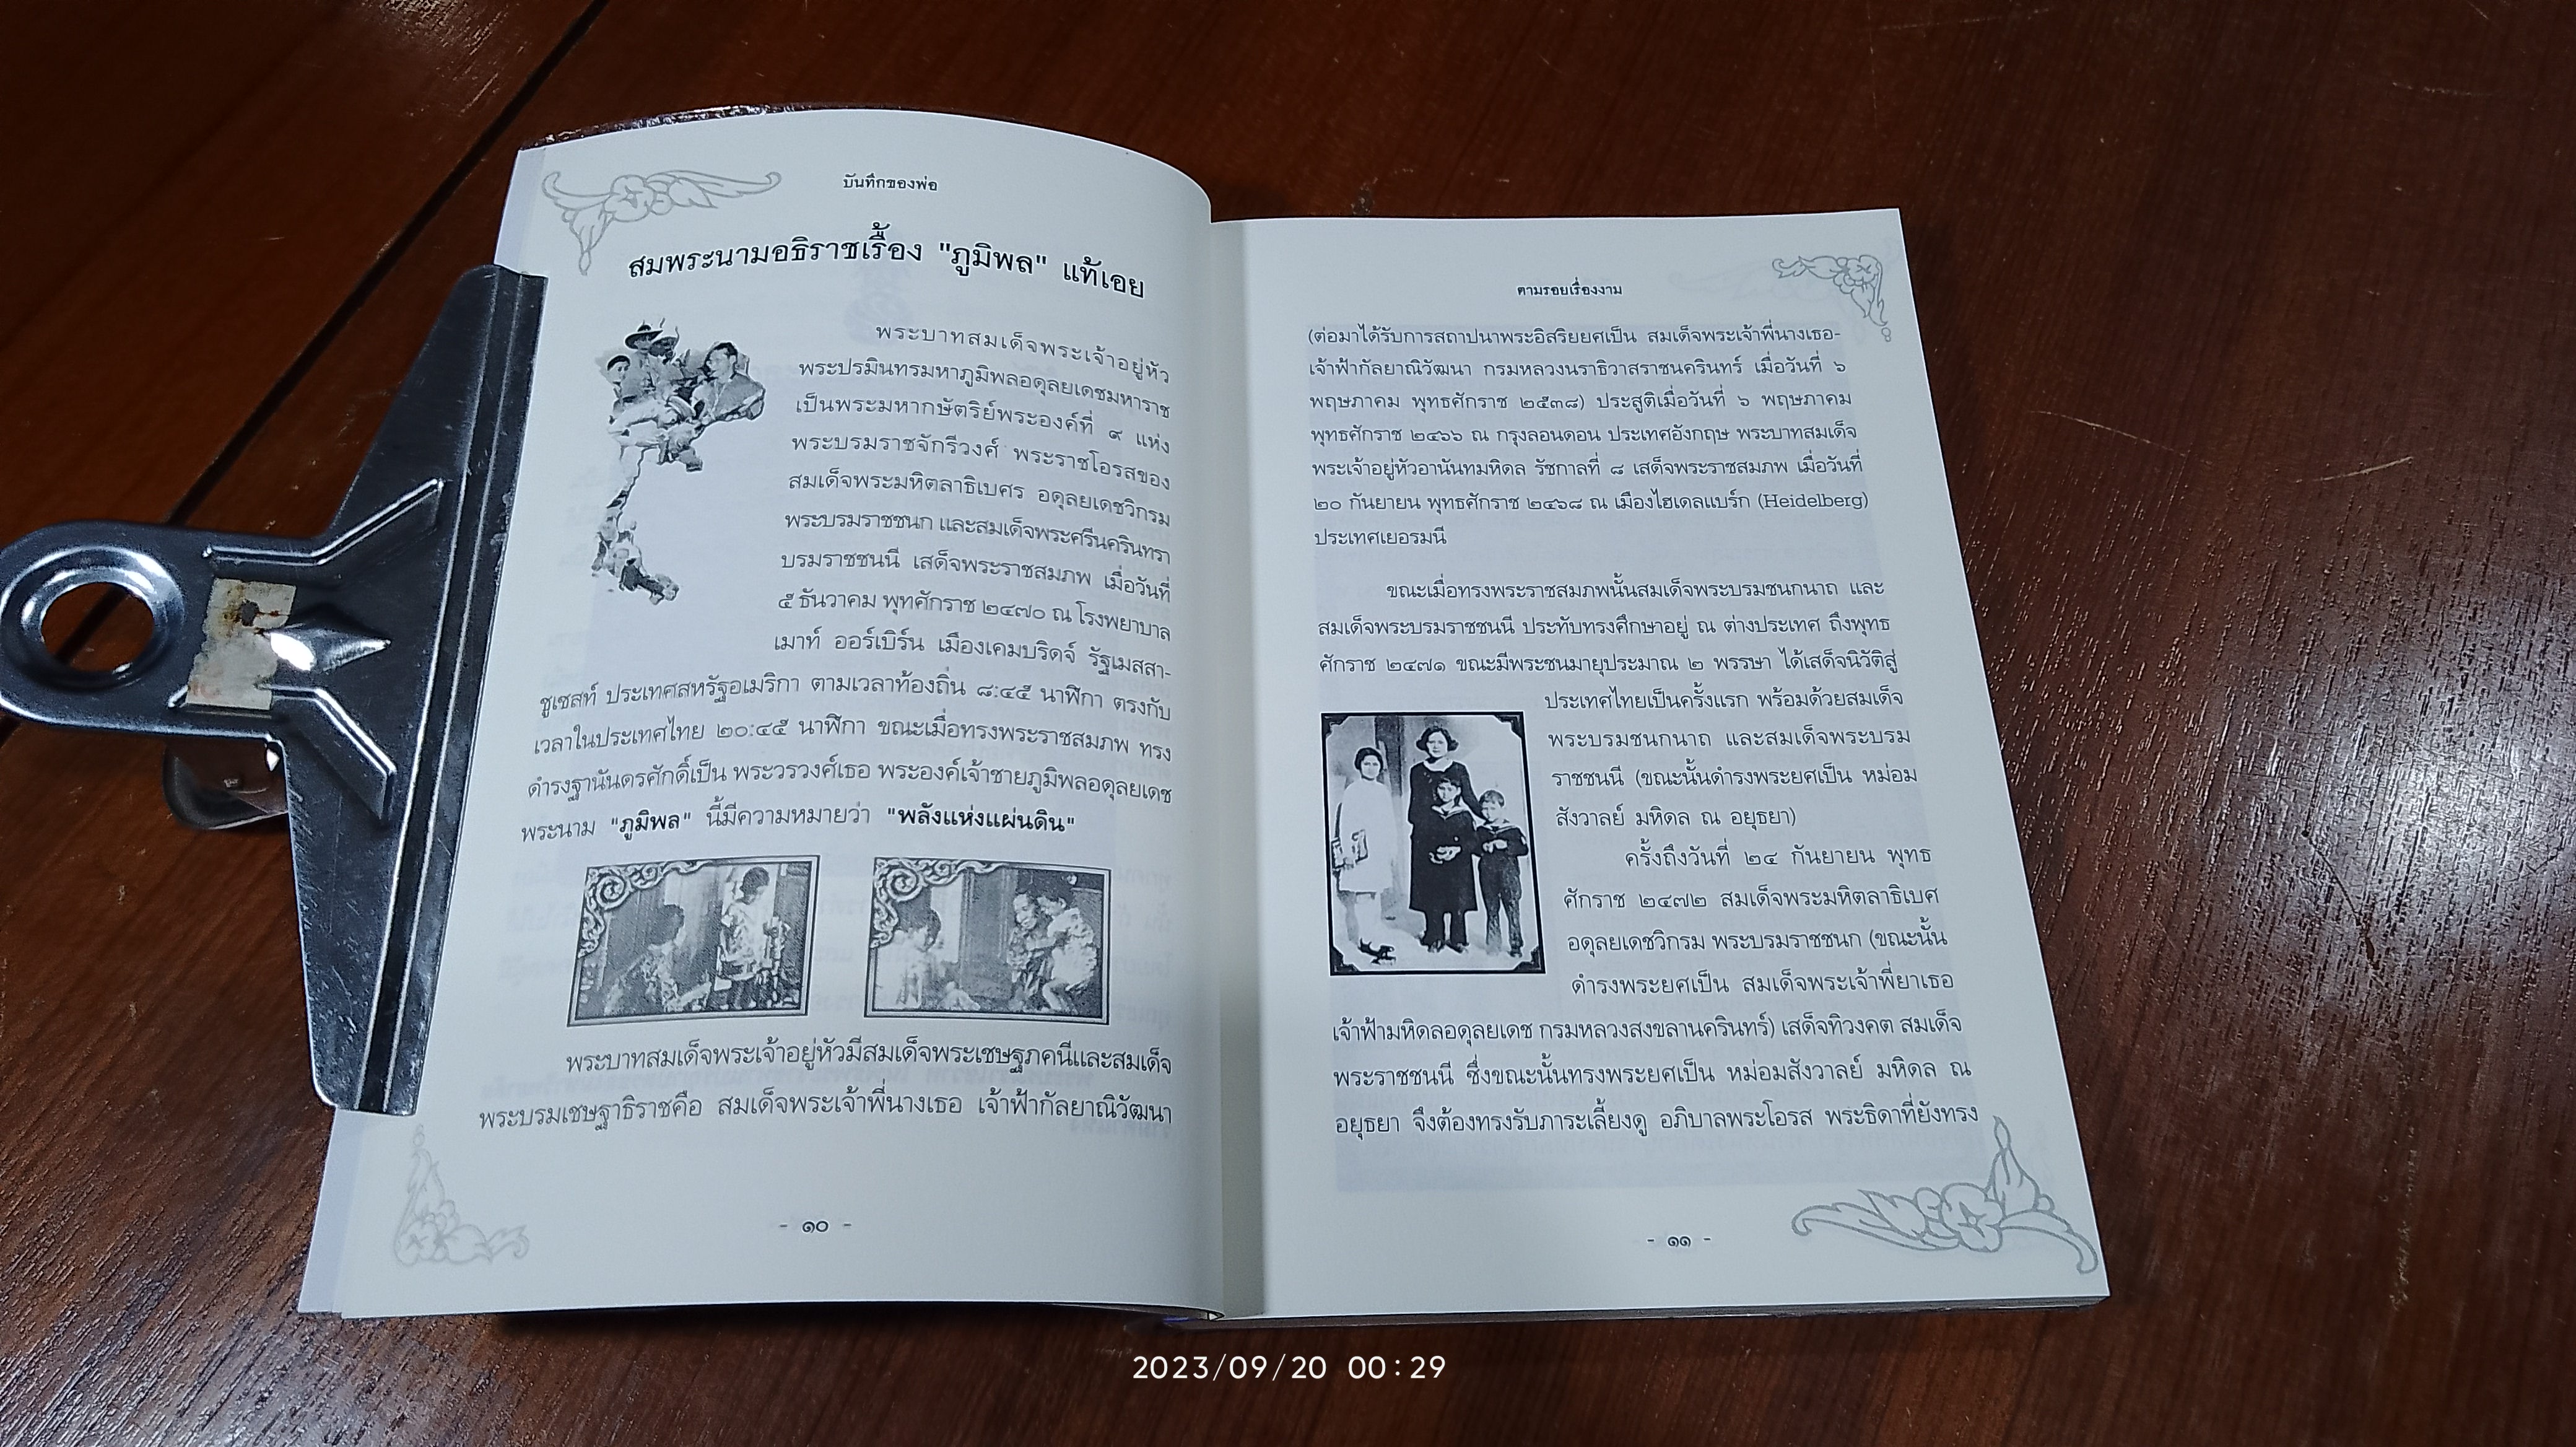 บันทึกของพ่อ
สมพระนามอธิราชเรื้อง "ภูมิพล" แท้เอย
พระบาทสมเด็จพระเจ้าอยู่หัว
พระปรมินทรมหาภูมิพลอดุลยเดชมหาราช
เป็นพระมหากษัตริย์พระองค์ที่ ๙ แห่ง
พระบรมราชจักรีวงศ์ พระราชโอรสของ
สมเด็จพระมหิตลาธิเบศร อดุลยเดชวิกรม
พระบรมราชชนก และสมเด็จพระศรีนครินทรา
บรมราชชนนี เสด็จพระราชสมภพ เมื่อวันที่
๕ ธันวาคม พุทศักราช ๒๔๗๐ ณ โรงพยาบาล
เมาท์ ออร์เบิร์น เมืองเคมบริดจ์ รัฐเมสสา-
ชูเซสท์ ประเทศสหรัฐอเมริกา ตามเวลาท้องถิ่น ๘:๔๕ นาฬิกา ตรงกับ
เวลาในประเทศไทย ๒๐:๔๕ นาฬิกา ขณะเมื่อทรงพระราชสมภพ ทรง
ดำรงฐานันดรศักดิ์เป็น พระวรวงศ์เธอ พระองค์เจ้าชายภูมิพลอดุลยเดช
พระนาม "ภูมิพล" นี้มีความหมายว่า "พลังแห่งแผ่นดิน"
พระบาทสมเด็จพระเจ้าอยู่หัวมีสมเด็จพระเชษฐภคนีและสมเด็จ
พระบรมเชษฐาธิราชคือ สมเด็จพระเจ้าพี่นางเธอ เจ้าฟ้ากัลยาณิวัฒนา
- ๑๐ -
ตามรอยเรื่องงาม
(ต่อมาได้รับการสถาปนาพระอิสริยยศเป็น สมเด็จพระเจ้าพี่นางเธอ-
เจ้าฟ้ากัลยาณิวัฒนา กรมหลวงนราธิวาสราชนครินทร์ เมื่อวันที่ ๖
พฤษภาคม พุทธศักราช ๒๕๓๘) ประสูติเมื่อวันที่ ๖ พฤษภาคม
พุทธศักราช ๒๔๖๖ ณ กรุงลอนดอน ประเทศอังกฤษ พระบาทสมเด็จ
พระเจ้าอยู่หัวอานันทมหิดล รัชกาลที่ ๘ เสด็จพระราชสมภพ เมื่อวันที่
๒๐ กันยายน พุทธศักราช ๒๔๖๘ ณ เมืองไฮเดลแบร์ก (Heidelberg)
ประเทศเยอรมนี
ขณะเมื่อทรงพระราชสมภพนั้นสมเด็จพระบรมชนกนาถ และ
สมเด็จพระบรมราชชนนี ประทับทรงศึกษาอยู่ ณ ต่างประเทศ ถึงพุทธ
ศักราช ๒๔๗๑ ขณะมีพระชนมายุประมาณ ๒ พรรษา ได้เสด็จนิวัติสู่
ประเทศไทยเป็นครั้งแรก พร้อมด้วยสมเด็จ
พระบรมชนกนาถ และสมเด็จพระบรม
ราชชนนี (ขณะนั้นดำรงพระยศเป็น หม่อม
สังวาลย์ มหิดล ณ อยุธยา)
ครั้งถึงวันที่ ๒๔ กันยายน พุทธ
ศักราช ๒๔๗๒ สมเด็จพระมหิตลาธิเบศ
อดุลยเดชวิกรม พระบรมราชชนก (ขณะนั้น
ดำรงพระยศเป็น สมเด็จพระเจ้าพี่ยาเธอ
เจ้าฟ้ามหิดลอดุลยเดช กรมหลวงสงขลานครินทร์) เสด็จทิวงคต สมเด็จ
พระราชชนนี ซึ่งขณะนั้นทรงพระยศเป็น หม่อมสังวาลย์ มหิดล ณ
อยุธยา จึงต้องทรงรับภาระเลี้ยงดู อภิบาลพระโอรส พระธิดาที่ยังทรง
- ๑๑ -
2023/09/20 00:29